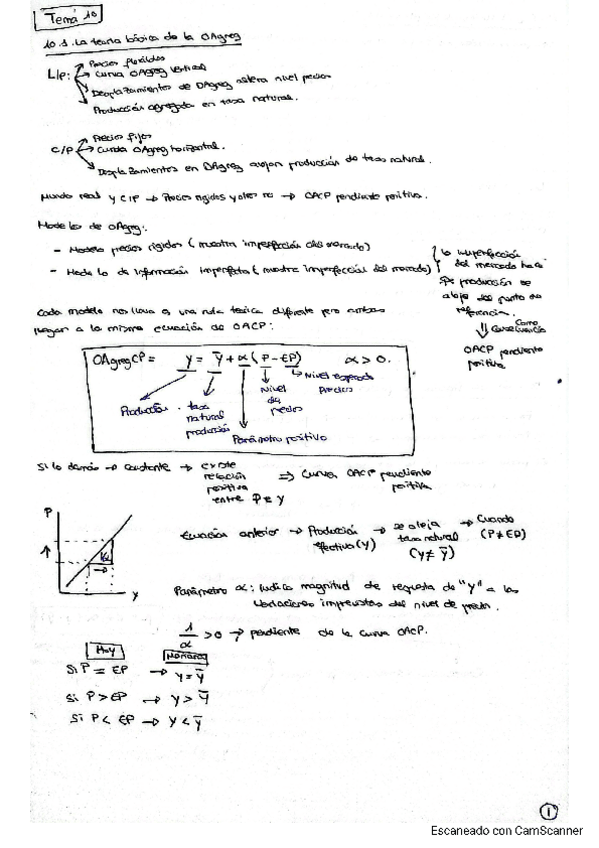 Tema 10
10.1. La teoría básica de la OAgreg
L/p:
Precios flexibles
Curva OAgreg vertical
Desplazamientos de DAgreg altera nivel precios
Producción agregada en tasa natural.
C/P
Precios fijos
Curva OAgreg horizontal.
Desplazamientos en DAgreg alejan producción de tasa natural.
Mundo real y C/P → Precios rígidos y otros no → OACP pendiente positiva.
Modelos de OAgreg:
- Modelo precios rígidos (muestra imperfección del mercado)
- Modelo de información imperfecta (muestra imperfección del mercado)
la imperfección
del mercado hace
producción se
aleja del punto de
referencia.
Como
consecuencia
OACP pendiente
positiva
Cada modelo nos lleva a una ruta teórica diferente pero ambos
llegan a la misma ecuación de OACP:
OAgregCP = y = ȳ + α (P - EP) α > 0.
Nivel esperado
Precios
Nivel
de
precios
Producción
tasa
natural
producción
Parámetro positivo
Si lo demás → constante → existe
relación
positiva
entre P e y
⇒ Curva OACP pendiente
positiva
P
y
Ecuación anterior → Producción
efectiva (y)
→ se aleja
tasa natural
(y ≠ ȳ)
→ Cuando
(P ≠ EP)
Parámetro α: Indica magnitud de respuesta de "y" a las
variaciones imprevistas del nivel de precios.
1/α > 0 → pendiente de la curva OACP.
Hoy
Si P = EP → y = ȳ
Si P > EP → y > ȳ
Si P < EP → y < ȳ
1
Escaneado con CamScanner